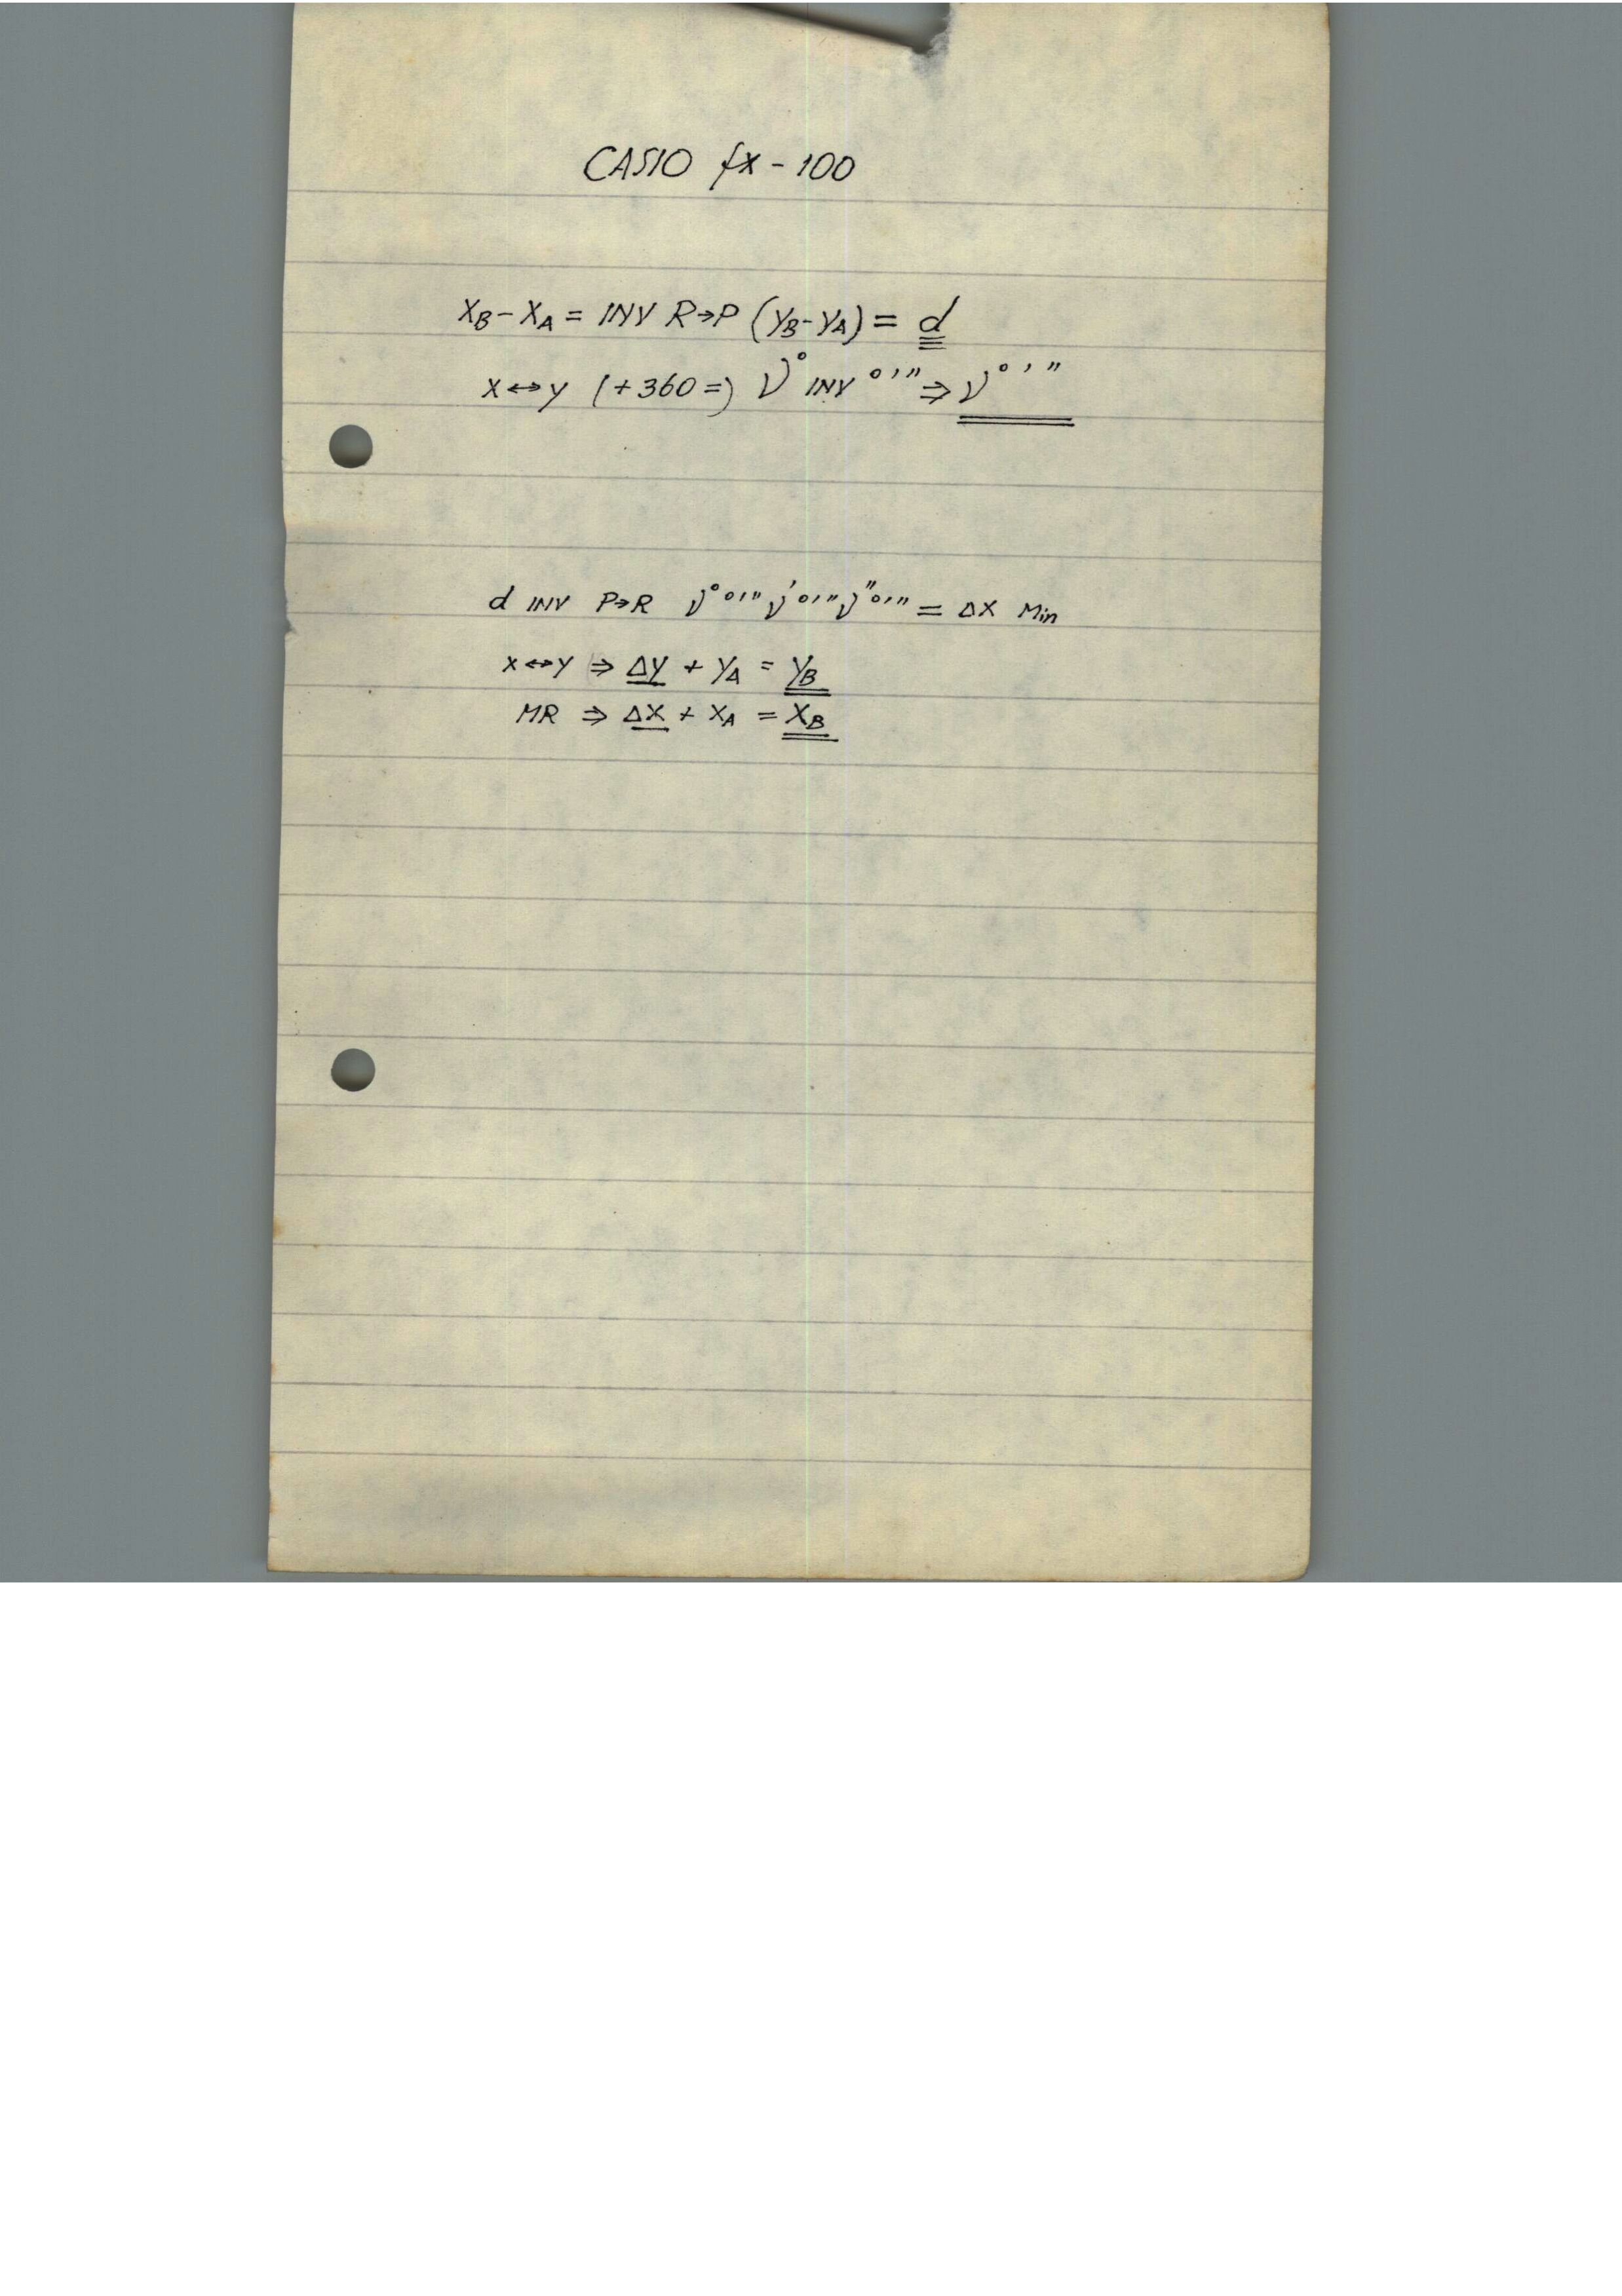 CASIO fx - 100
X_B - X_A = INV R→P (Y_B - Y_A) = d
X↔Y (+360=) ν° INV °'" ⇒ ν°'"
d INV P→R ν° °'" ν' °'" ν" °'" = ΔX Min
X↔Y ⇒ ΔY + Y_A = Y_B
MR ⇒ ΔX + X_A = X_B